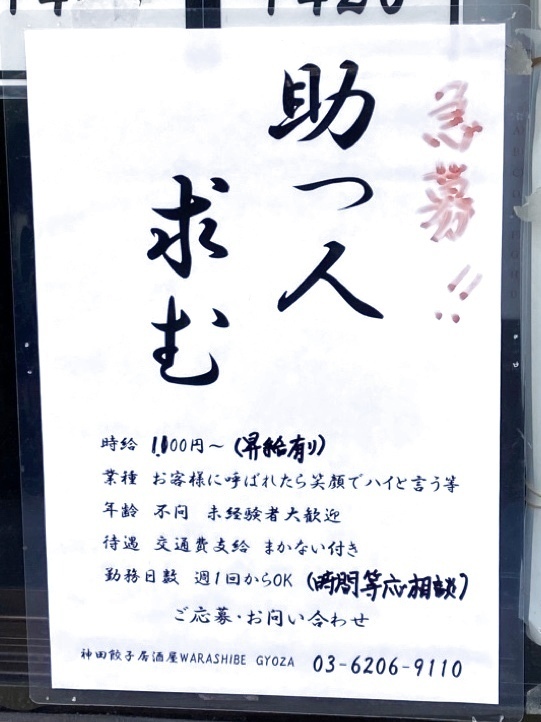 急募!!
助っ人
求む
時給 1,100円～(昇給有り)
業種 お客様に呼ばれたら笑顔でハイと言う等
年齢 不問 未経験者大歓迎
待遇 交通費支給 まかない付き
勤務日数 週1回からOK (時間等応相談)
ご応募・お問い合わせ
神田餃子居酒屋WARASHIBE GYOZA 03-6206-9110